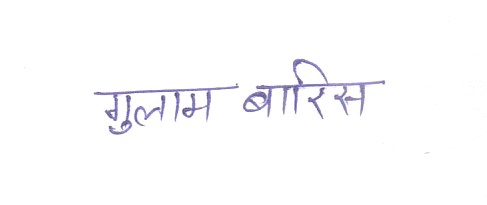 गुलाम बारिस